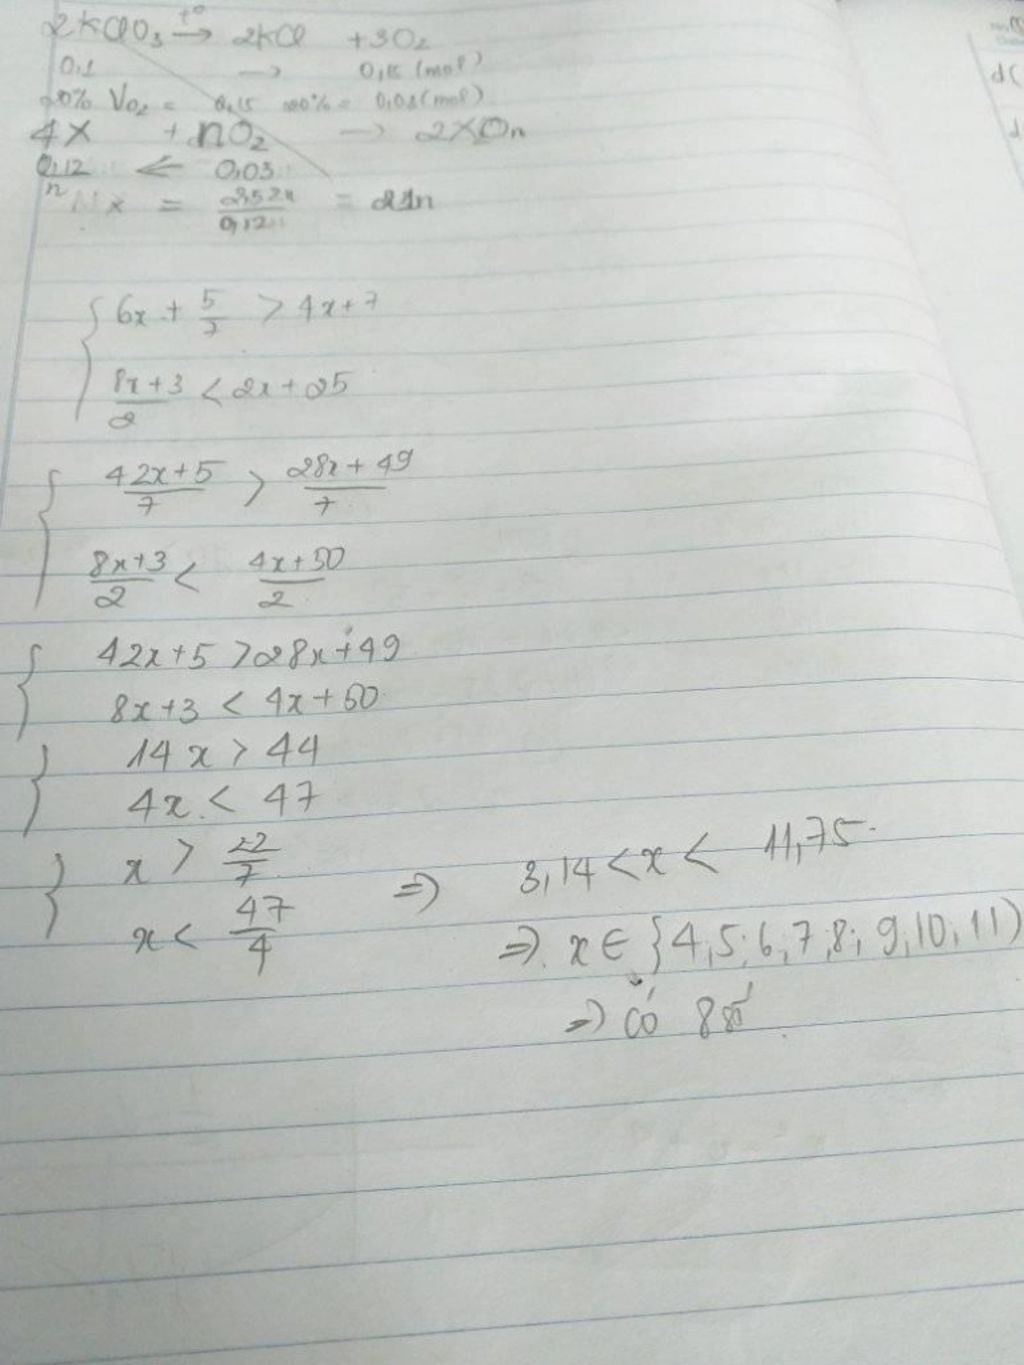 2KClO₃ t°→ 2KCl + 3O₂
0,1 → 0,15 (mol)
20% Vo₂ = 0,15 100% = 0,03 (mol)
4X + nO₂ → 2XOn
0,12/n ← 0,03
Mx = 2,52n/0,12 = 21n
{ 6x + 5/7 > 4x + 7
(8x+3)/2 < 2x + 25
{ (42x+5)/7 > (28x+49)/7
(8x+3)/2 < (4x+50)/2
{ 42x+5 > 28x+49
8x+3 < 4x+50
} 14x > 44
4x < 47
} x > 22/7
x < 47/4 ⇒ 3,14 < x < 11,75
⇒ x ∈ }4,5;6,7,8; 9,10,11)
⇒ có 8 số